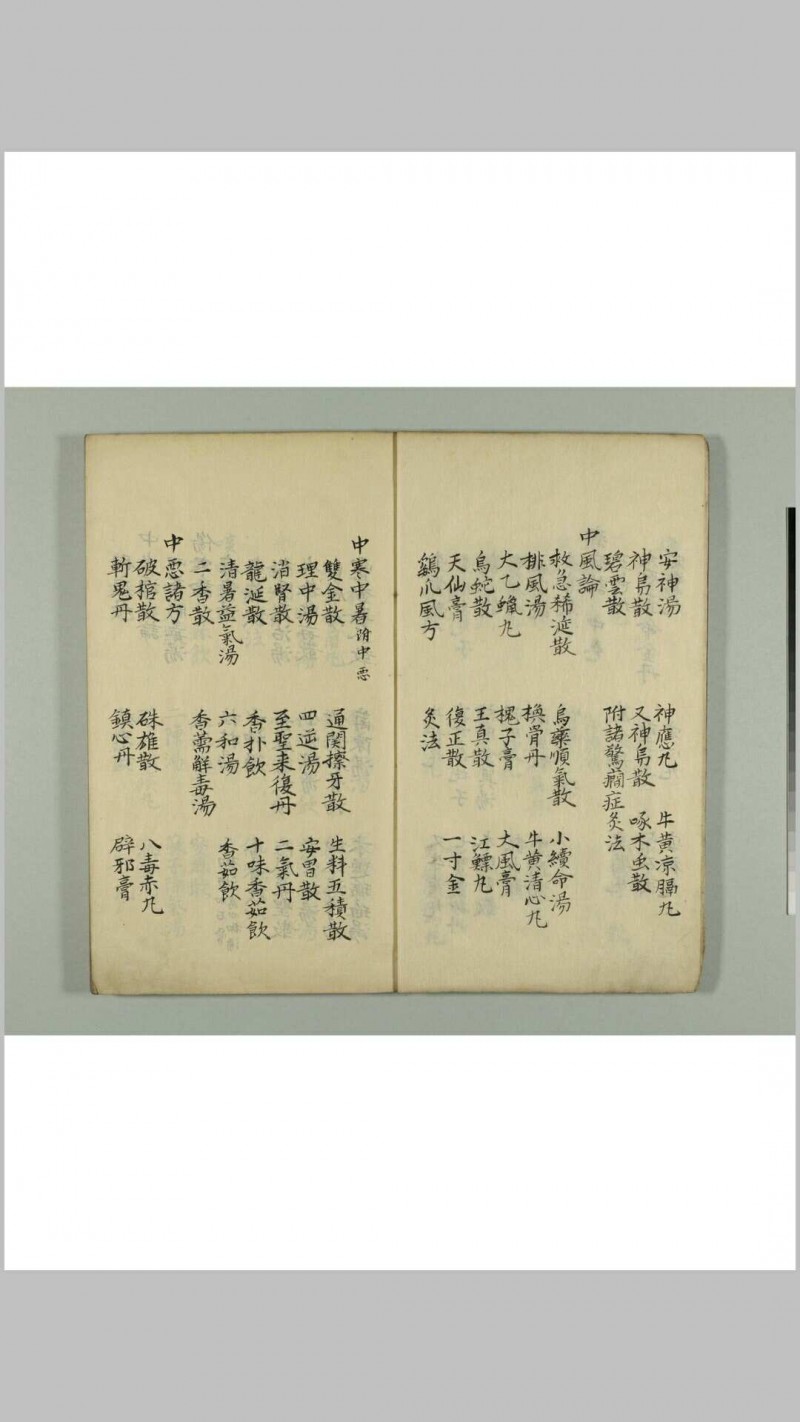 安神湯 神應丸 牛黃凉膈丸
神易散 又神易散 啄木虫散
碧雲散 附諸驚癇症灸法
中風論
救急稀涎散 烏藥順氣散 小續命湯
排風湯 換骨丹 牛黃清心丸
大乙蠟丸 槐子膏 大風膏
烏蛇散 王真散 江鰾丸
天仙膏 復正散 一寸金
鷄爪風方 灸法
中寒中暑附中惡
雙金散 通関擦牙散 生料五積散
理中湯 四逆湯 安胃散
消腎散 至聖来復丹 二氣丹
龍涎散 香朴飲 十味香茹飲
清暑益氣湯 六和湯 香茹飲
二香散 香薷解毒湯
中惡諸方
破棺散 硃雄散 八毒赤丸
斬鬼丹 鎮心丹 辟邪膏